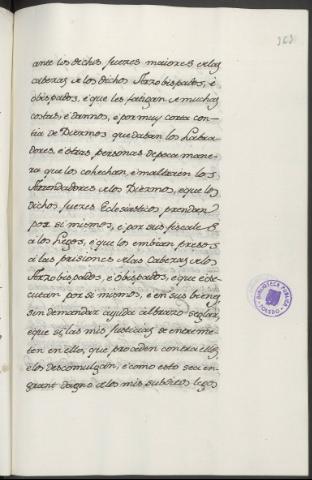 363
ante los dichos juezes maiores de las
cabezas de los dichos Arzobispados, é
obispados, é que les fatigan de muchas
costas, é dannos, é por muy corta con
tia de Diezmos que daban los Labra
dores, é otras personas de poca mane
ra que los cohechan, é maltraen los
Arrendadores de los Diezmos, é que los
dichos juezes Eclesiasticos prenden
por si mismos, é por sus fiscales
a los Legos, é que los embian presos
a las prisiones de las Cabezas de los
Arzobispados, é obispados, é que exe
cutan por si mismos, é en sus bienes
sin demandar ayuda al brazo seglar,
é que si las mis Justicias se entreme
ten en ello, que proceden contra ellos,
é los descomulgan, é como esto sea en
grant dagno de los mis subditos legos
BIBLIOTECA PUBLICA
TOLEDO